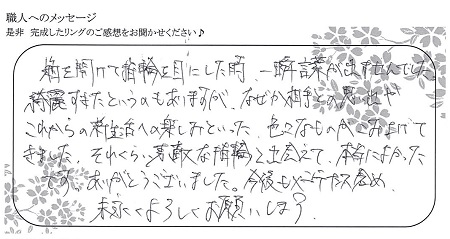 職人へのメッセージ
是非 完成したリングのご感想をお聞かせください♪
箱を開けて指輪を目にした時、一瞬言葉が出ませんでした
綺麗すぎたというのもありますが、なぜか相手との思い出や
これからの新生活への楽しみといった、色々なものがこみあげて
きました。それくらい素敵な指輪と出会えて、本当によかった
です。ありがとうございました。今後もメンテナンス含め、
末永くよろしくお願いします。